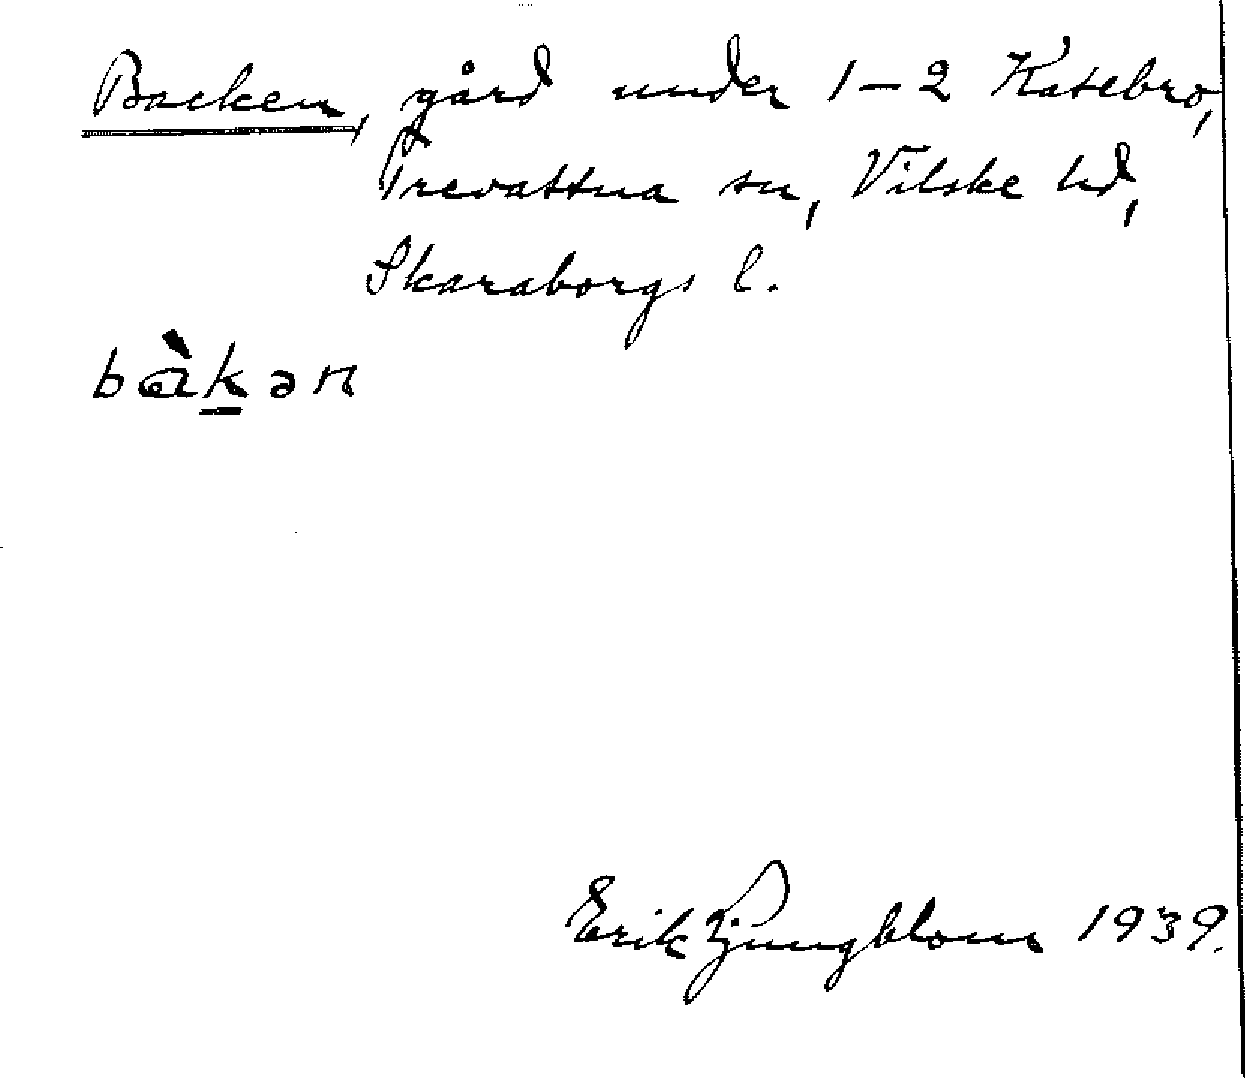 Backen, gård under 1-2 Katebro,
Trevattna sn, Vilske hd,
Skaraborgs l.
bàk̲ən
Erik Ljungblom 1939.